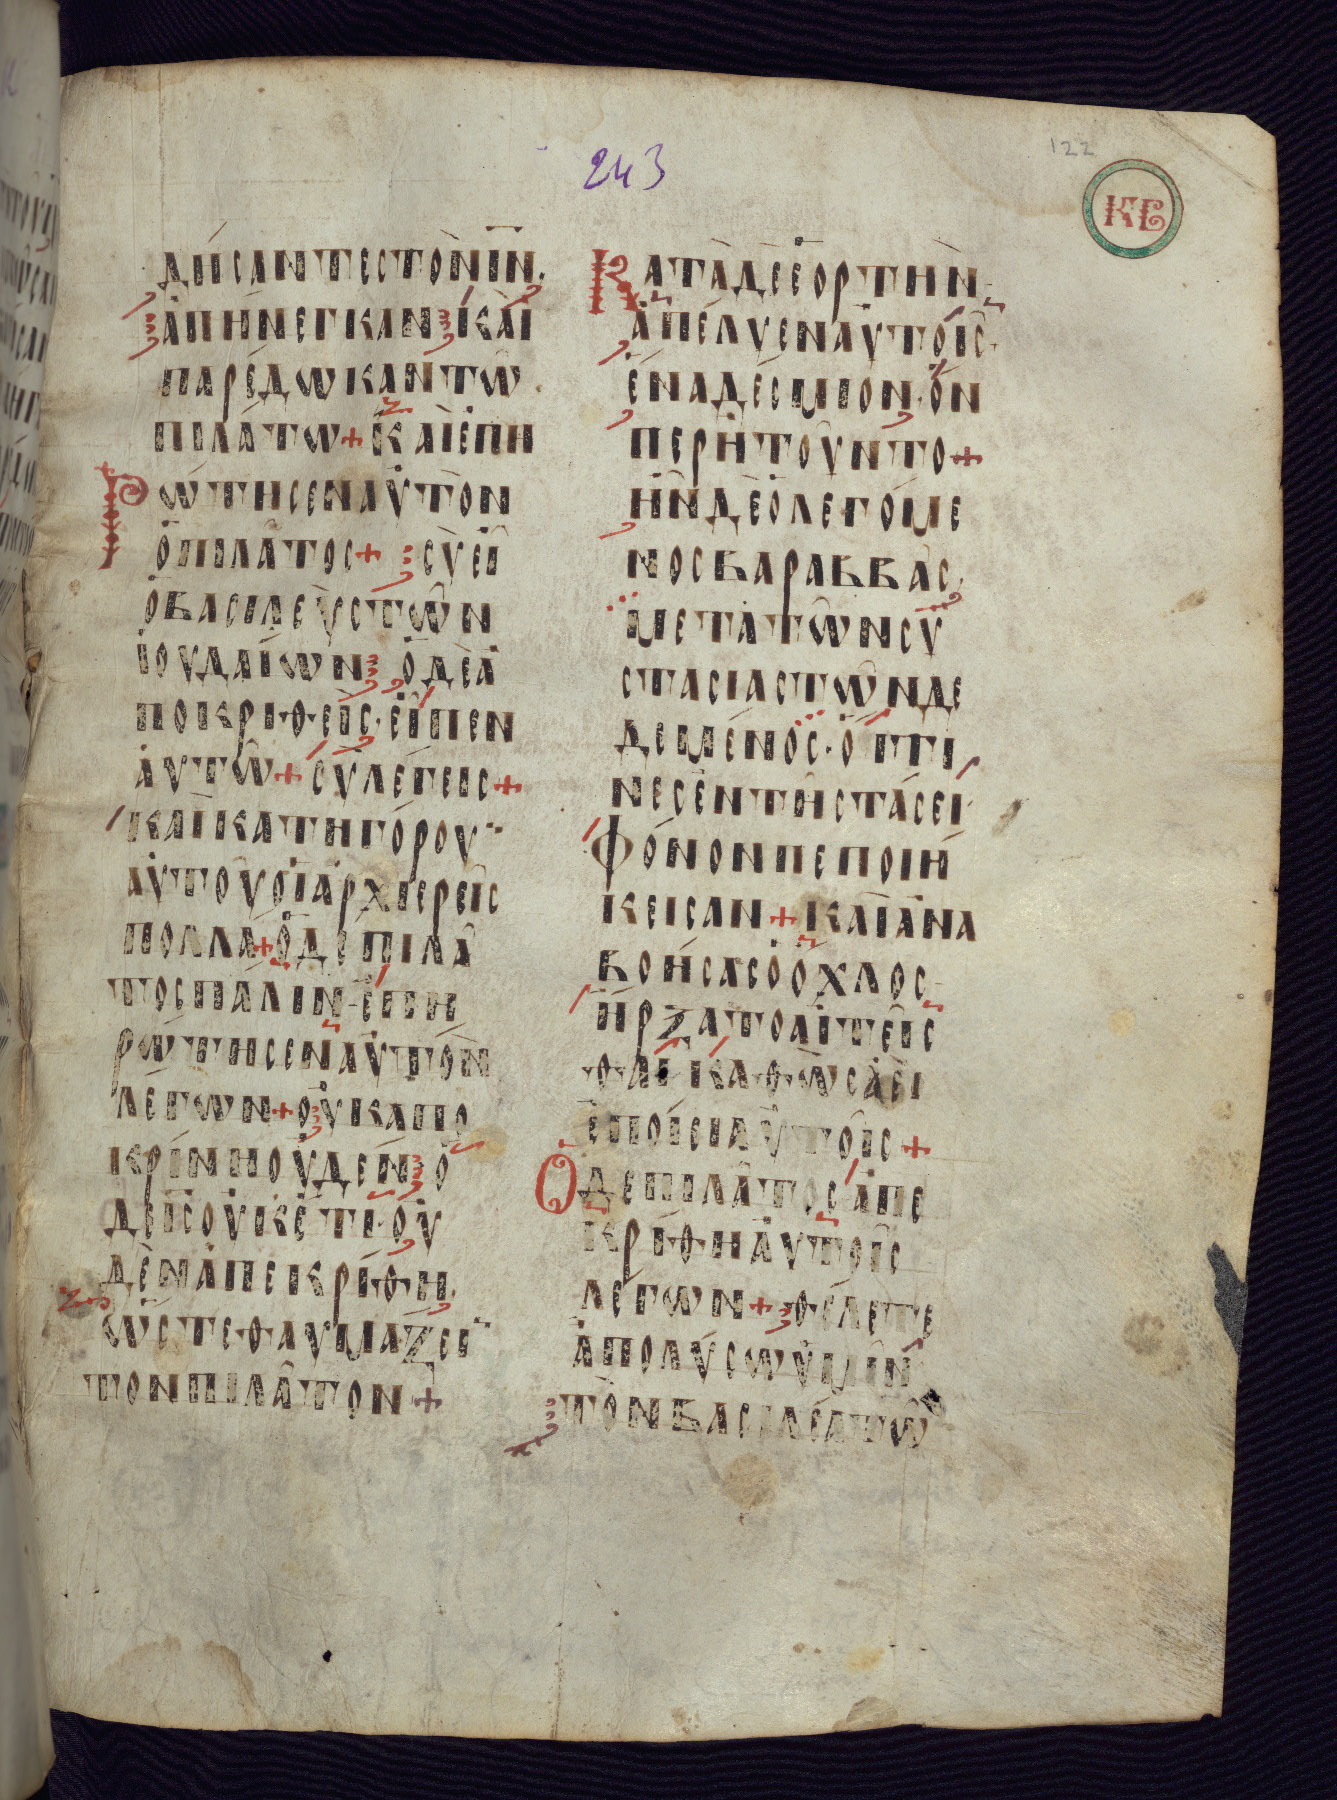 243
122
ΚΕ
ΔΉCΑΝΤΕCΤῸΝΙ͞Ν.
ἈΠΉΝΕΓΚΑΝ ΚΑῚ
ΠΑΡΈΔѠΚΑΝΤѠ͂.
ΠΙΛΆΤѠ+ΚΑῚἘΠΗ
ΡѠ́ΤΗCΕΝΑΥ̓ΤῸΝ
ὉΠΙΛΑ͂ΤΟC+ CῪΕἾ
ὉΒΑCΙΛΕῪCΤѠ͂Ν
ἸΟΥΔΑΊѠΝ ὉΔῈἈ
ΠΟΚΡΙΘΕῚC·ΕἾΠΕΝ
ΑΥ̓ΤѠ͂+CῪΛΈΓΕΙC+
ΚΑῚΚΑΤΗΓΌΡΟΥ¨
ΑΥ̓ΤΟΥ͂ΟἹἈΡΧΙΕΡΕΙ͂C
ΠΟΛΛΆ+ὉΔΕΠΙΛΑ͂
ΤΟCΠΆΛΙΝ·ἘΠΗ
ΡѠ́ΤΗCΕΝΑΥ̓ΤῸΝ
ΛΈΓѠΝ+ΟΥ̓ΚΑΠΟ
ΚΡΊΝΗΟΥ̓ΔΈΝ Ὁ
ΔΕΙ͞CΟΥ̓ΚΈΤΙ·ΟΥ̓
ΔῈΝἈΠΕΚΡΊΘΗ.
ѠCΤΕΘΑΥΜΑΖΕΙ¨
ΤΟΝΠΙΛΑ͂ΤΟΝ+
ΚΑΤᾺΔΕἙΟΡΤῊΝ
ἈΠΈΛΥΕΝΑΥ̓ΤΟΙ͂C·
ἝΝΑΔΈCΜΙΟΝ·ὋΝ
ΠΕΡἨΤΟΥ͂ΝΤΟ+
ἮΝΔῈὉΛΕΓΌΜΕ
ΝΟCΒΑΡΑΒΒΑ͂C,
ΜΕΤᾺΤѠ͂ΝCΥ
CΤΑCΙΑCΤѠ͂ΝΔΕ
ΔΕΜΈΝΟC·ὍΙΤΙ
ΝΕCἘΝΤΗ͂CΤΆCΕΙ
ΦΌΝΟΝΠΕΠΟΙΉ
ΚΕΙCΑΝ+ΚΑῚἈΝΑ
ΒΟΉCΑCὉὌΧΛΟC
ἬΡΞΑΤΟΑἸΤΕΙ͂C
ΘΑΙ ΚΑΘѠ̀CἈΕῚ
ἘΠΟΊΕΙΑΥ̓ΤΟΙ͂C+
ὉΔΕΠΙΛΑ͂ΤΟCἈΠΕ
ΚΡΊΘΗΑΥ̓ΤΟΙ͂C
ΛΈΓѠΝ+ΘΈΛΕΤΕ
ἈΠΟΛΎCѠὙΜΙ͂Ν
ΤῸΝΒΑCΙΛΈΑΤѠ͂